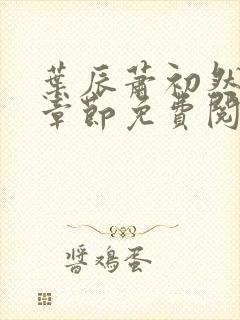 葉辰蕭初然
章節免費閱
醬鸡蛋